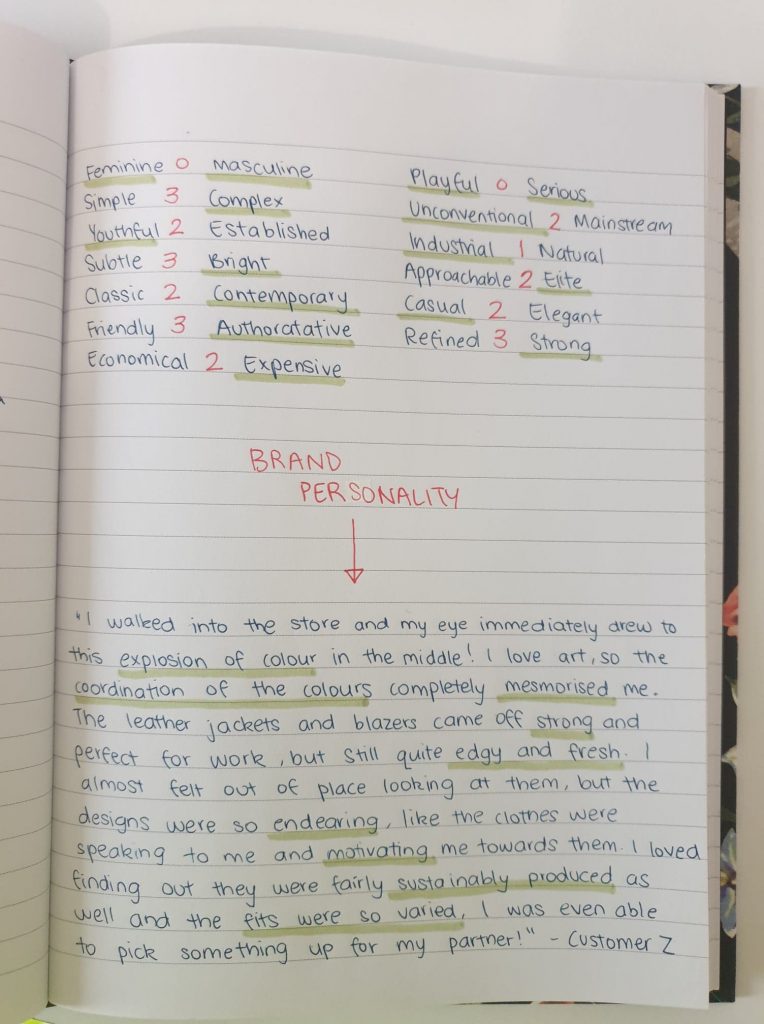 Feminine 0 Masculine
Simple 3 Complex
Youthful 2 Established
Subtle 3 Bright
Classic 2 Contemporary
Friendly 3 Authoratative
Economical 2 Expensive
Playful 0 Serious
Unconventional 2 Mainstream
Industrial 1 Natural
Approachable 2 Elite
Casual 2 Elegant
Refined 3 Strong
BRAND
PERSONALITY
"I walked into the store and my eye immediately drew to
this explosion of colour in the middle! I love art, so the
coordination of the colours completely mesmorised me.
The leather jackets and blazers came off strong and
perfect for work, but still quite edgy and fresh. I
almost felt out of place looking at them, but the
designs were so endearing, like the clothes were
speaking to me and motivating me towards them. I loved
finding out they were fairly sustainably produced as
well and the fits were so varied, I was even able
to pick something up for my partner!" - Customer Z